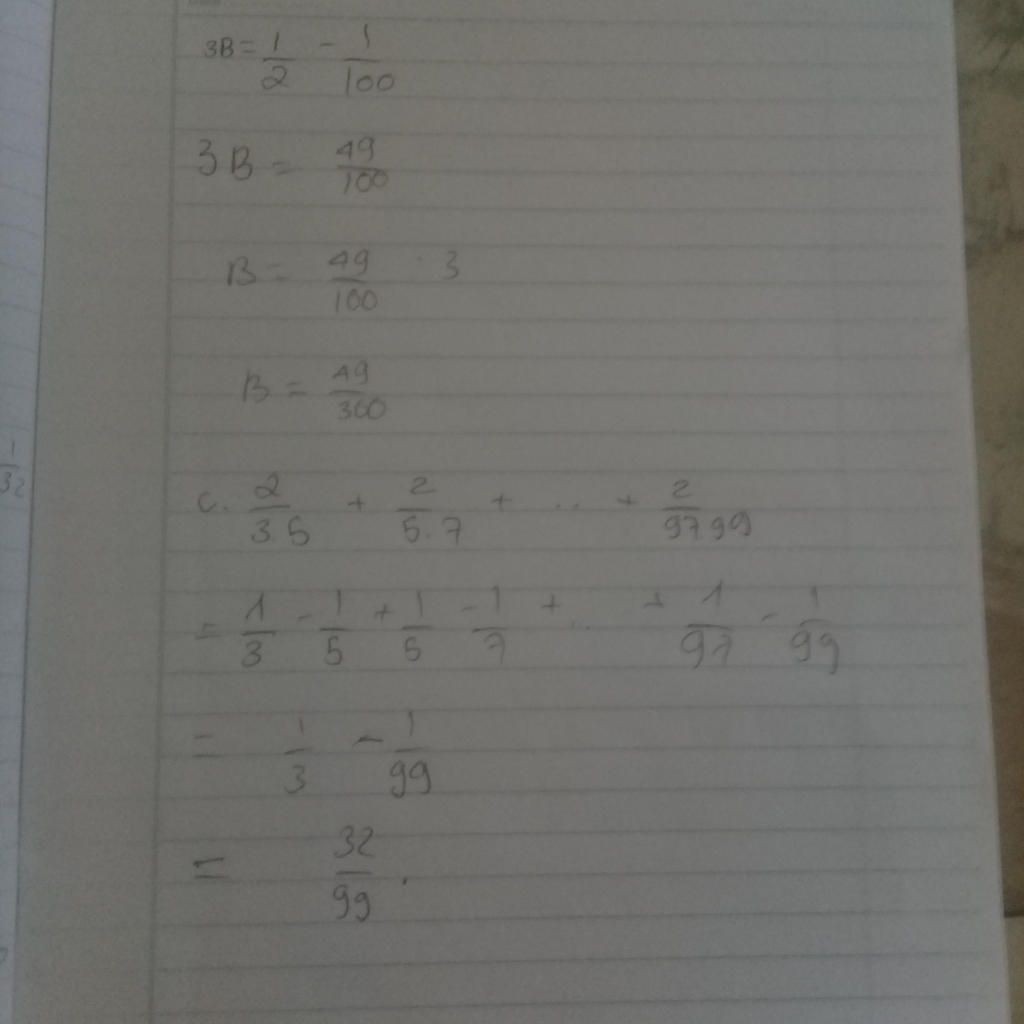 3B = 1/2 - 1/100
3B = 49/100
B = 49/100 : 3
B = 49/300
c. 2/3.5 + 2/5.7 + ... + 2/97.99
= 1/3 - 1/5 + 1/5 - 1/7 + ... + 1/97 - 1/99
= 1/3 - 1/99
= 32/99.
1/32